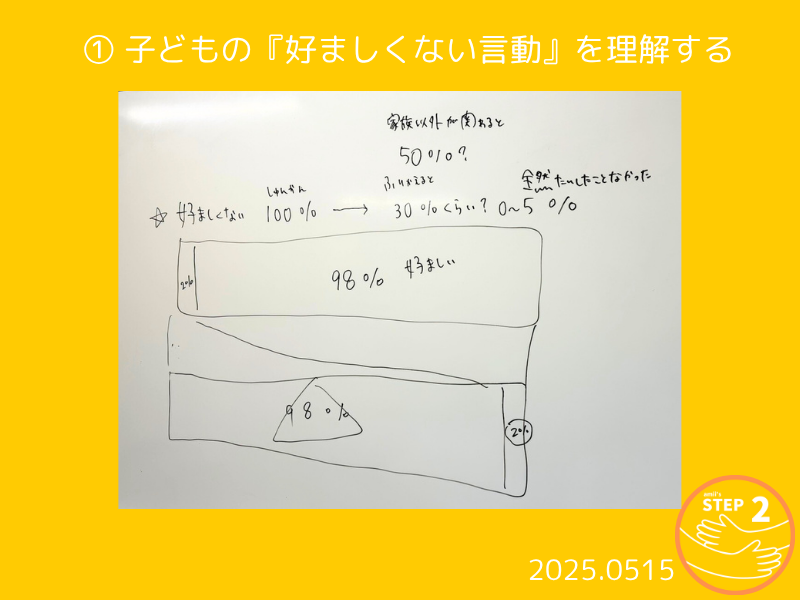 ① 子どもの『好ましくない言動』を理解する
家族以外が関わると
50%?
しゅんかん
ふりかえると
全然たいしたことなかった
☆ 好ましくない 100% → 30%くらい? 0~5%
2%
98% 好ましい
98%
2%
STEP 2
2025.0515